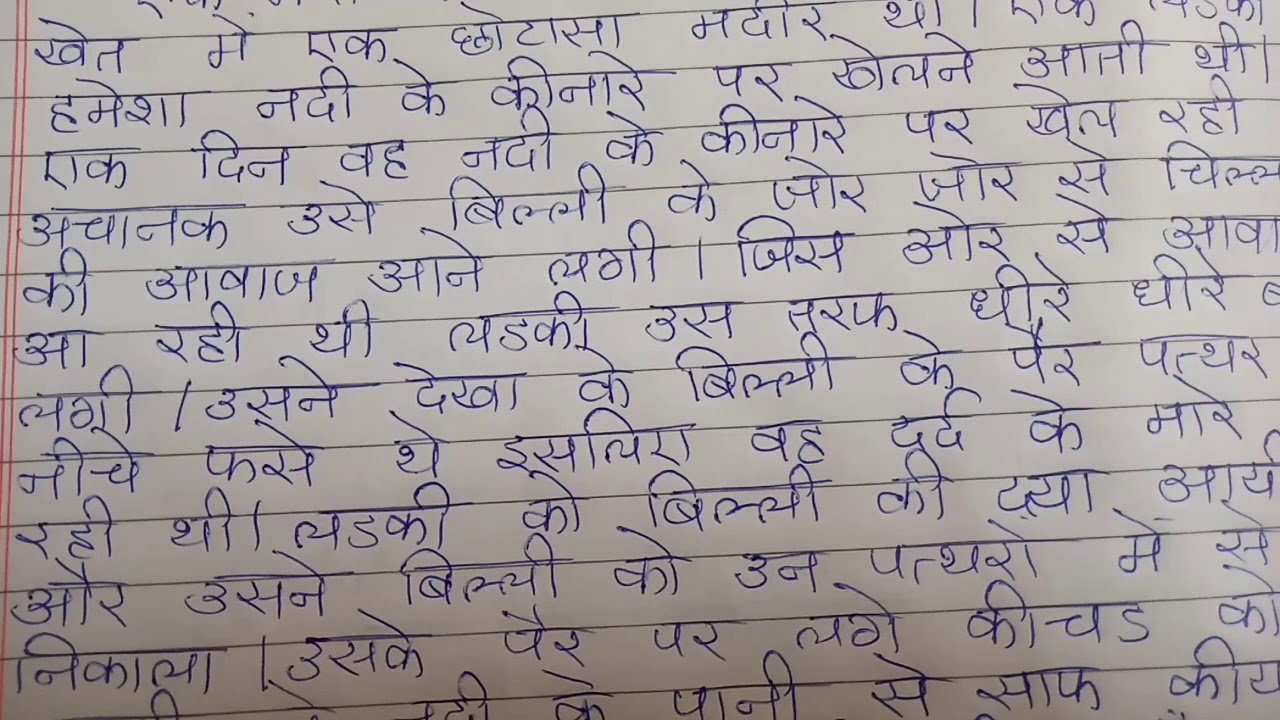 खेत में एक छोटासा मदीर था। एक लडकी
हमेशा नदी के कीनारे पर खेलने आती थी।
एक दिन वह नदी के कीनारे पर खेल रही
अचानक उसे बिल्ली के जोर जोर से चिल्ल
की आवाज आने लगी। जिस ओर से आवा
आ रही थी लडकी उस तरफ धीरे धीरे
लगी। उसने देखा के बिल्ली के पैर पत्थर
नीचे फसे थे इसलिए वह दर्द के मारे
रही थी। लडकी को बिल्ली की दया आयी
और उसने बिल्ली को उन पत्थरो में से
निकाला। उसके पैर पर लगे कीचड को
नदी के पानी से साफ कीय